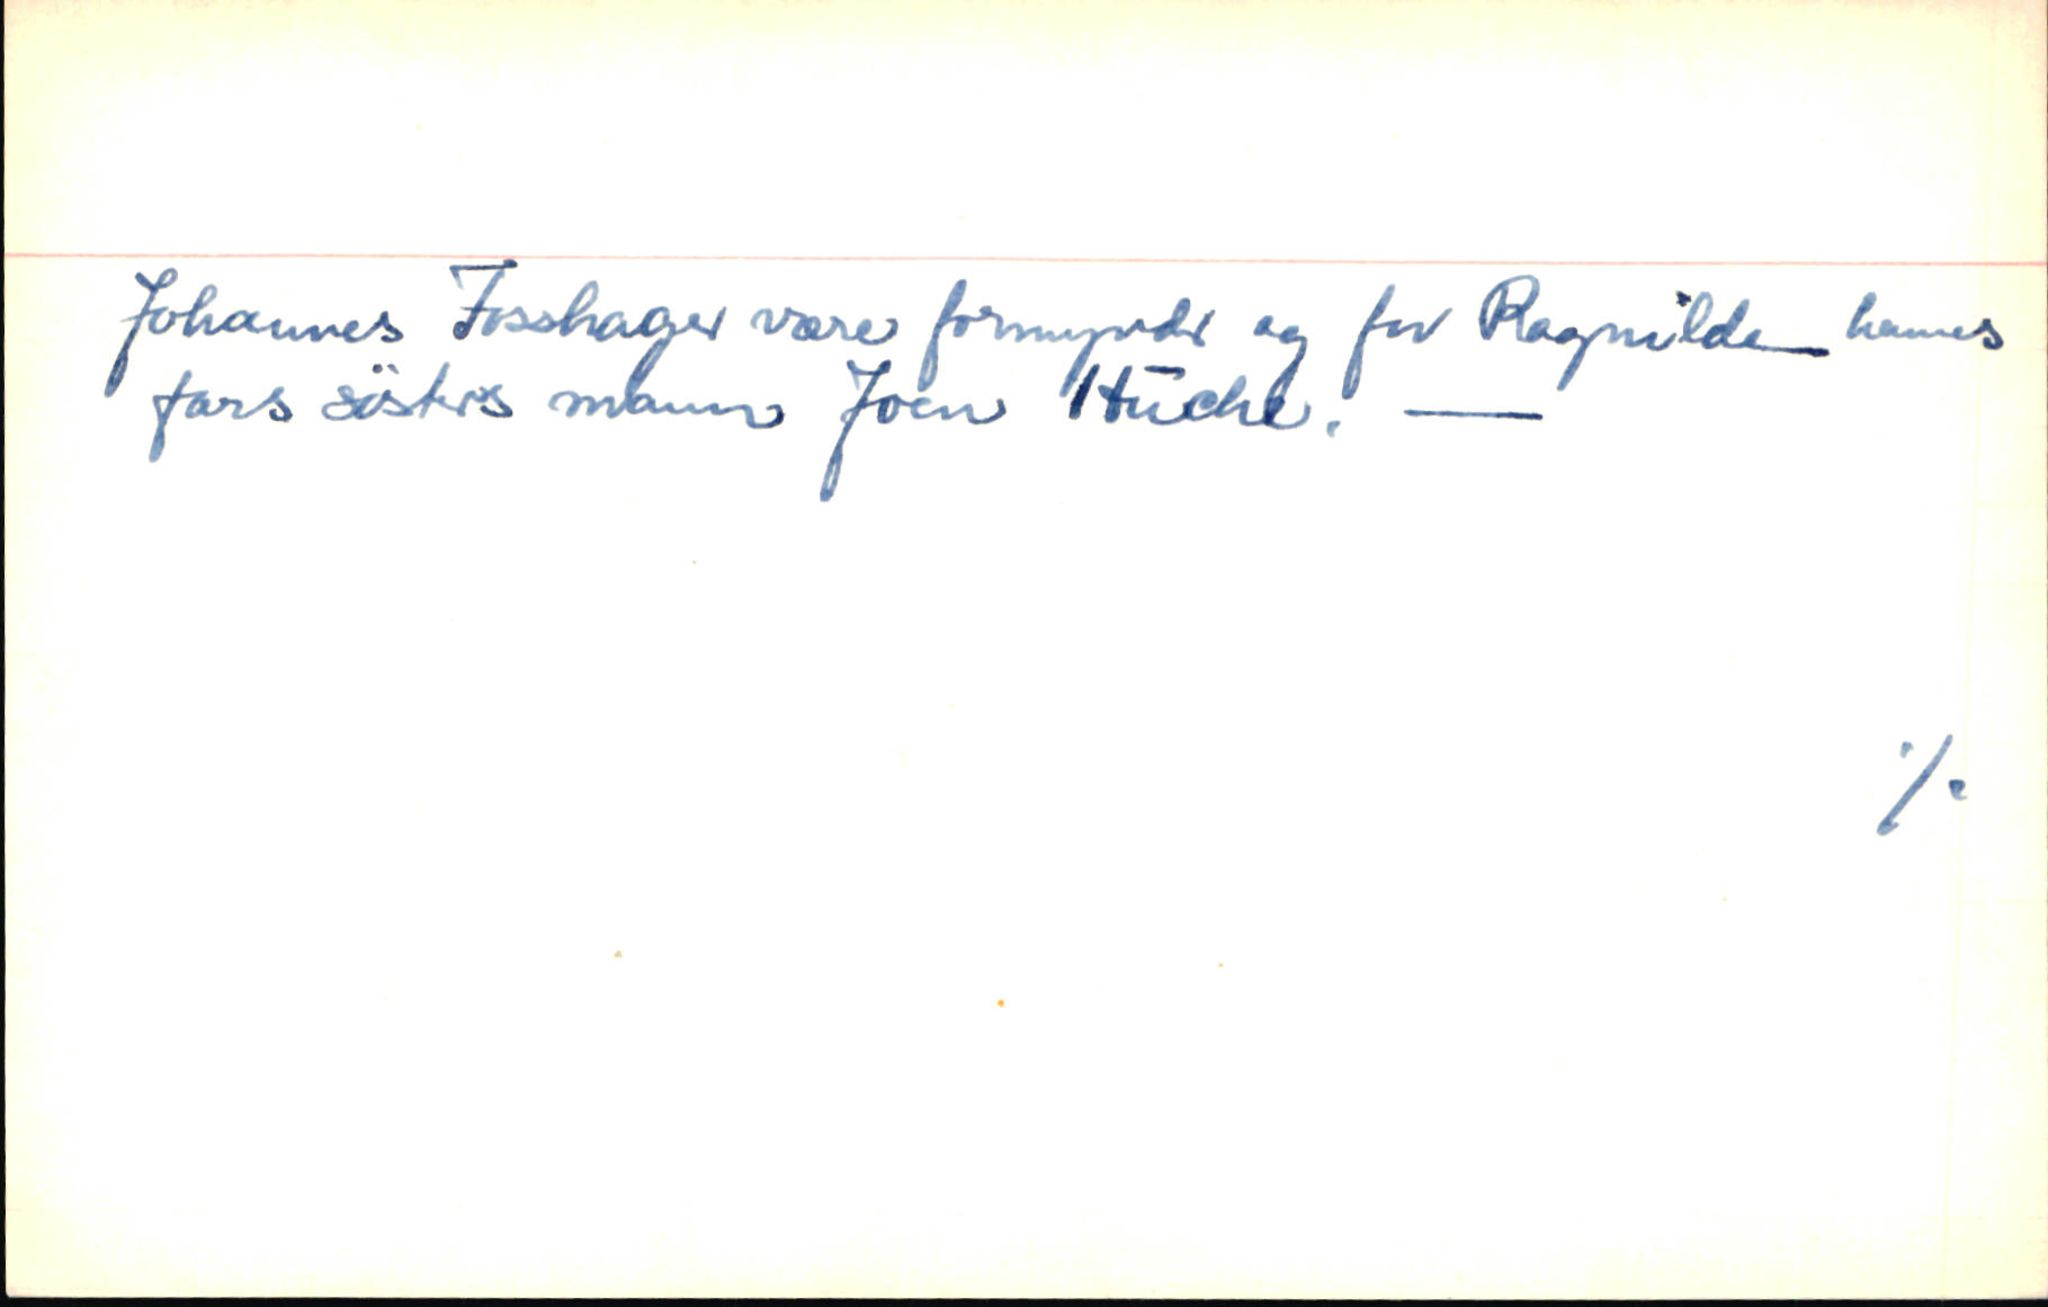 Johannes Fosshager være formynder og for Ragnilde hannes
fars sösters mann Joen Hüche. —
·/.